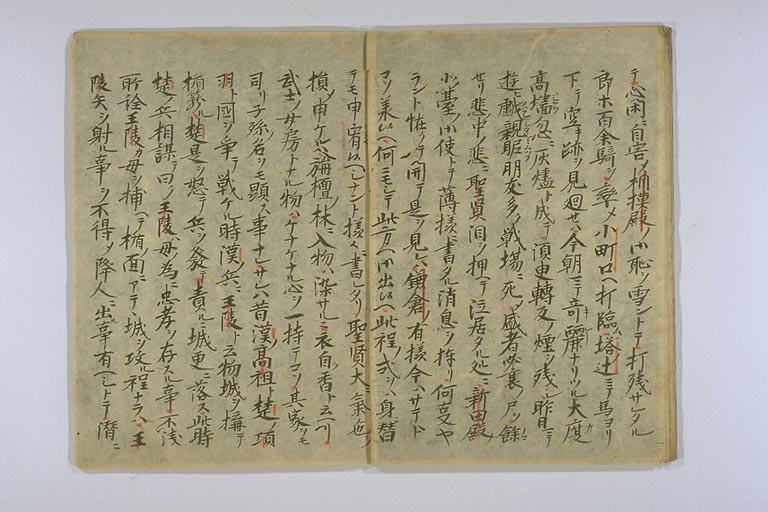 テ心閑ニ自害ノ相模殿ノ御恥ヲ雪ントテ打残サレタル
郎等百余騎ヲ率メ小町口ヘ打臨ム塔辻ニテ馬ヨリ
下テ空キ跡ヲ見廻セハ今朝ニテ奇麗ナリツル大廈
高墻忽ニ灰燼ト成テ須臾轉反ノ煙ヲ残シ昨日ニテ
遊ヒ戯親昵朋友多ク戦場ニ死テ盛者必衰ノ尸ヲ餘
セリ悲中ノ悲ニ聖賢泪ヲ押テ泣居タル処ニ新田殿
小臺ノ御使トテ薄様ニ書タル消息ヲ捧リ何事ヤ
ラント恠ンテ開テ是ヲ見レハ鎌倉ノ有様今ハサテト
コソ承ハ何ニモシテ此方ヘ御出ハヘ此程ノ式ヲハ身替
テモ申宥ハヘシナント様々ニ書レタリ聖賢大ニ氣色ヲ
損ノ申ケルハ栴檀ノ林ニ入物ハ染サルニ衣自香ト云ヘリ
武士ノ女房トナル物ハケナケナル心ヲ一持テコソ其家ヲモ
司リ子孫名ヲモ顕ス事ナレサレハ昔漢ノ高祖ト楚ノ項
羽ト國ヲ争テ戦ケル時漢ノ兵ニ王陵ト云物城ヲ搆テ
楯籠ル楚是ヲ怒テ兵ヲ發テ責ルニ城更ニ落ス此時
楚ノ兵相謀テ曰ク王陵母ノ為ニ忠孝ヲ存スル事不浅
所詮王陵カ母ヲ捕ヘテ楯ノ面ニアテヽ城ヲ攻ル程ナラハ王
陵矢ヲ射ル事ヲ不得ノ降人ニ出ル事有ヘシトテ潜ニ